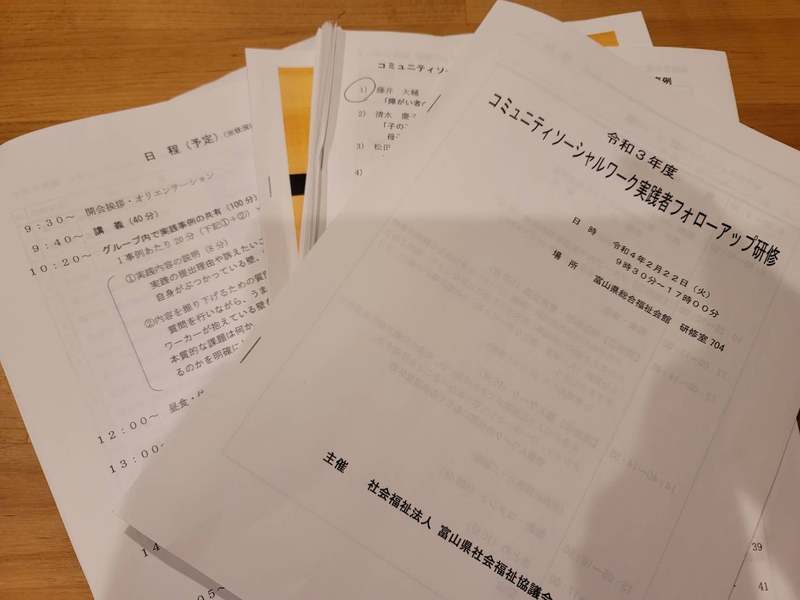 日 程（予定）
９：３０～ 開会挨拶・オリエンテーション
９：４０～ 講 義（40分）
１０：２０～ グループ内で実践事例の共有（100分）
１事例あたり20分（下記①＋②）
①実践内容の説明（５分）
実践の提出理由や訴えたいこ
自身がぶつかっている壁、
②内容を掘り下げるための質
質問を行いながら、うま
ワーカーが抱えている壁
本質的な課題は何か
るのかを明確に
１２：００～ 昼食・
１３：００～
１４
コミュニティソー
1) 藤井 大
「障がい者
2) 清水
「子の
母
3) 松田
4)
例
令和３年度
コミュニティソーシャルワーク実践者フォローアップ研修
日 時 令和４年２月２２日（火）
９時３０分～１７時００分
場 所 富山県総合福祉会館 研修室704
主催 社会福祉法人 富山県社会福祉協議会
39
41